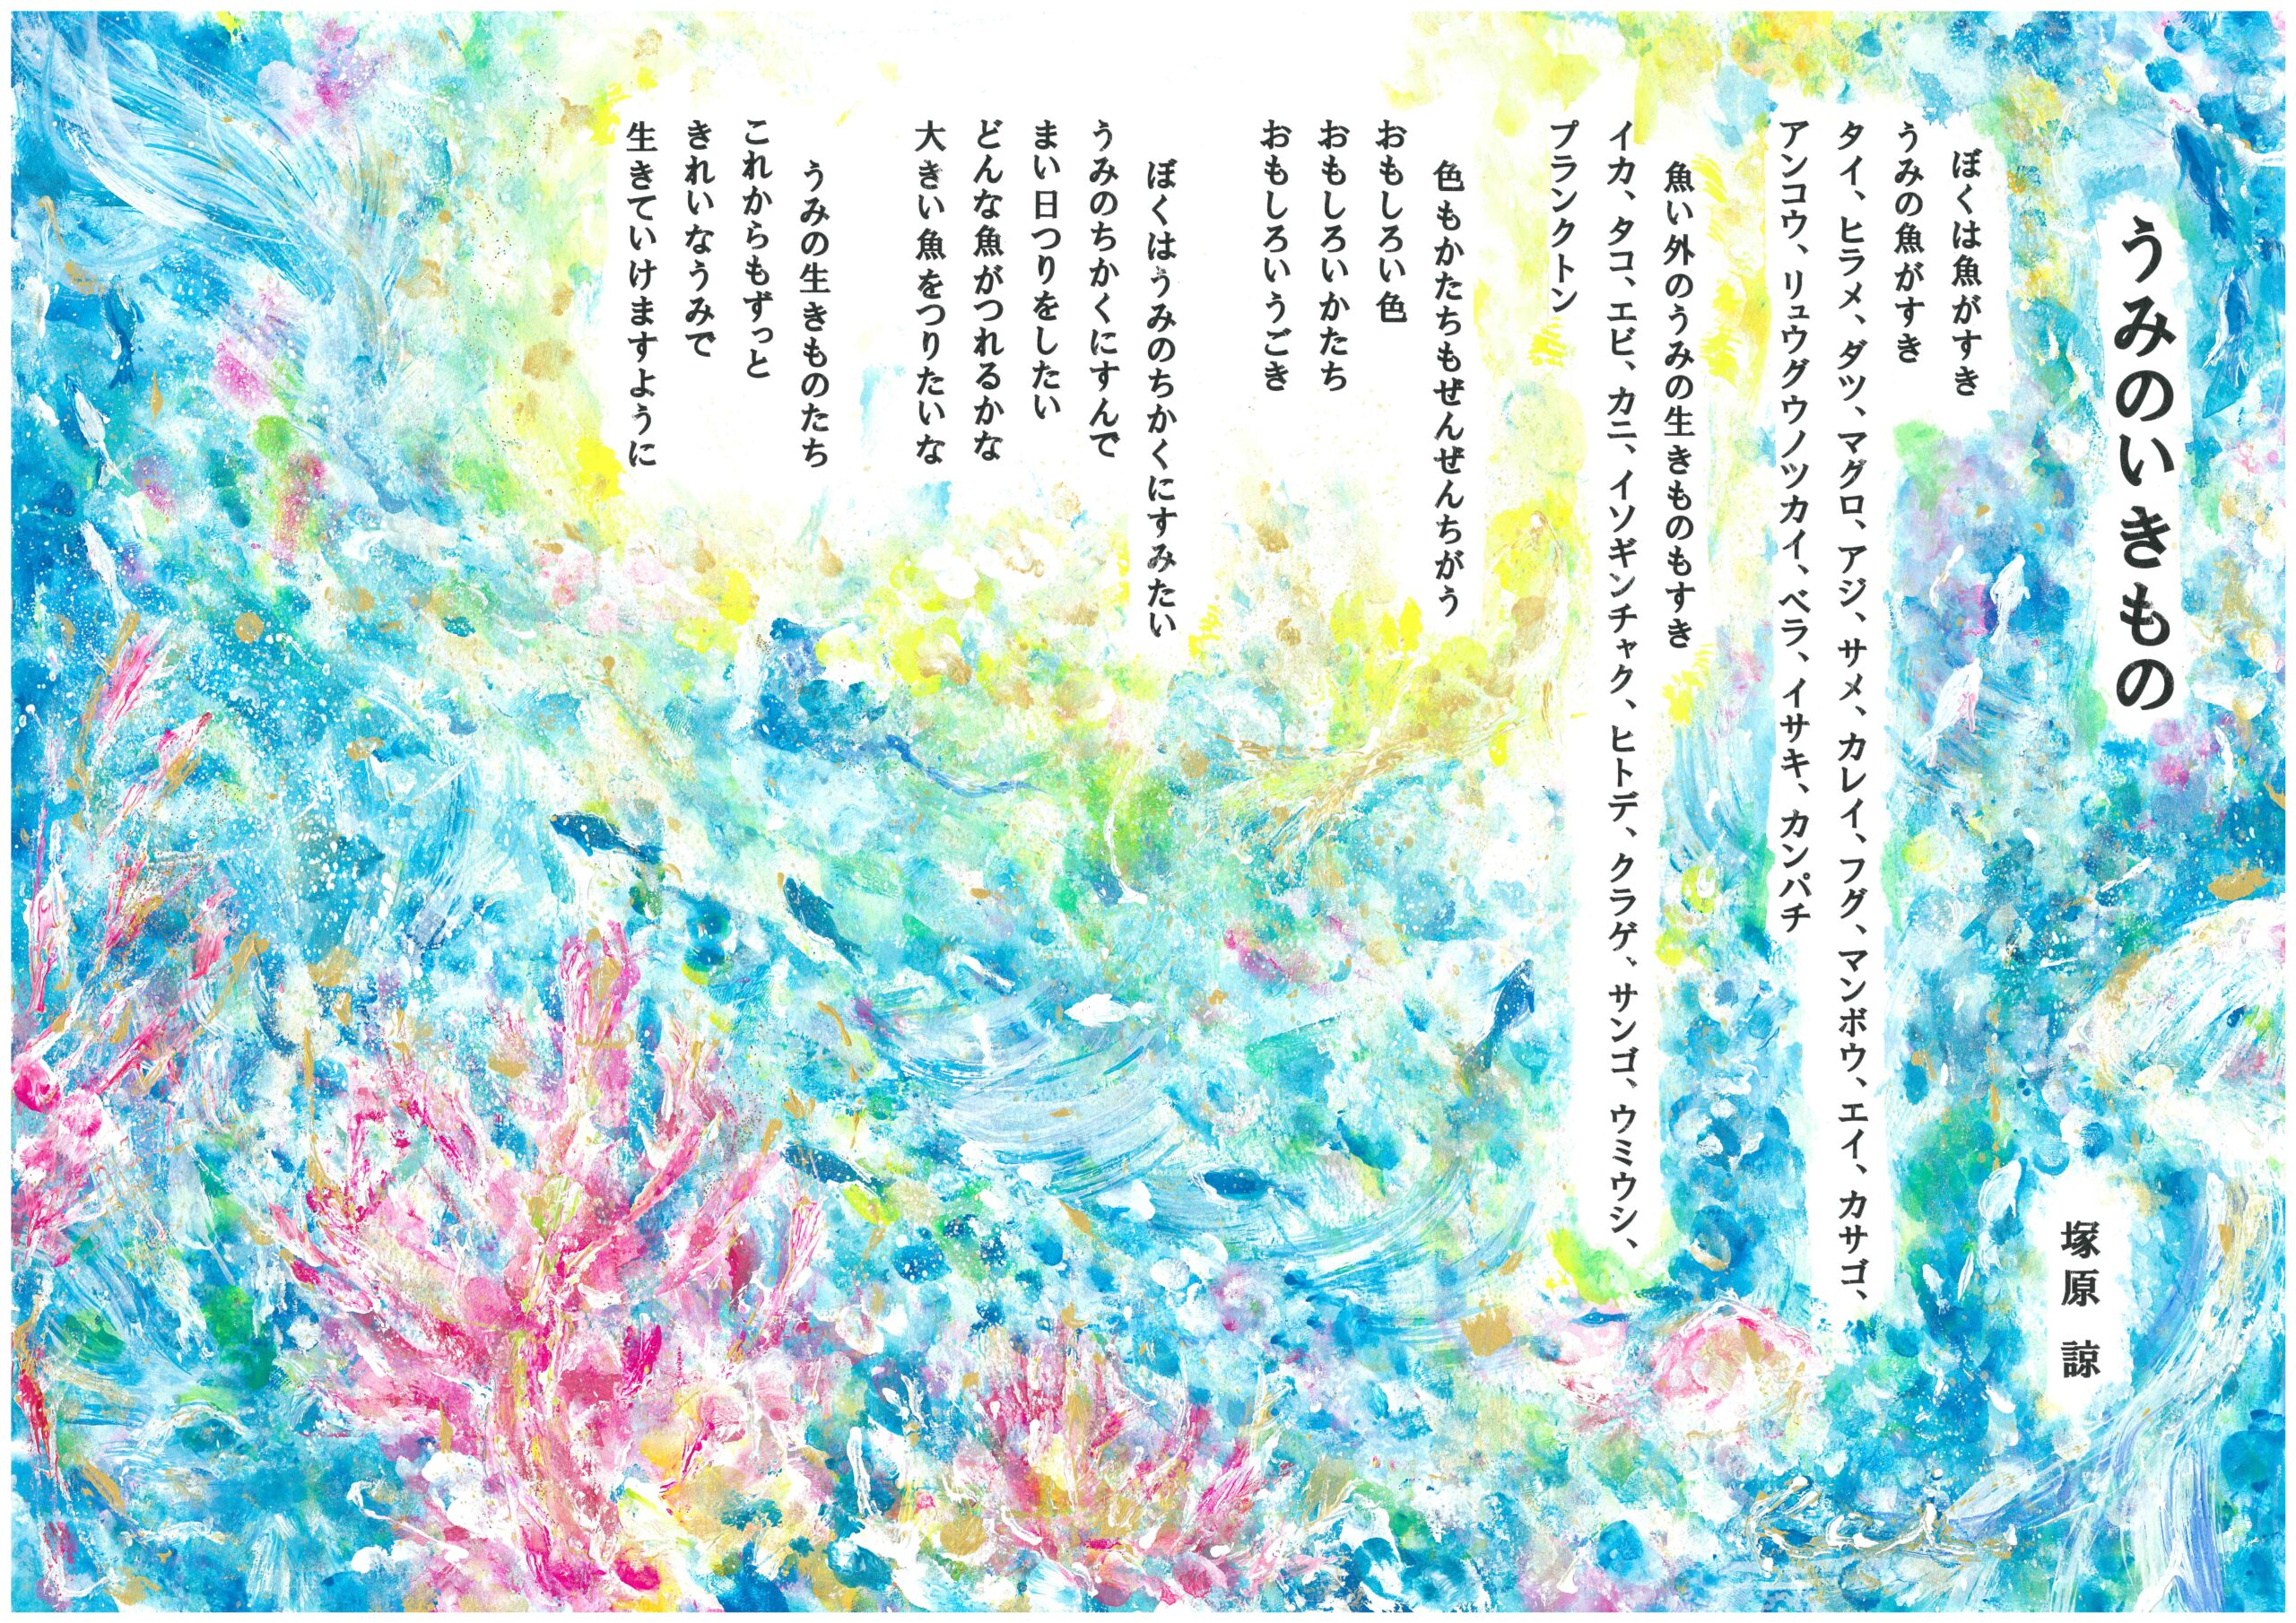 うみのいきもの
塚原 諒
ぼくは魚がすき
うみの魚がすき
タイ、ヒラメ、ダツ、マグロ、アジ、サメ、カレイ、フグ、マンボウ、エイ、カサゴ、
アンコウ、リュウグウノツカイ、ベラ、イサキ、カンパチ
魚い外のうみの生きものもすき
イカ、タコ、エビ、カニ、イソギンチャク、ヒトデ、クラゲ、サンゴ、ウミウシ、
プランクトン
色もかたちもぜんぜんちがう
おもしろい色
おもしろいかたち
おもしろいうごき
ぼくはうみのちかくにすみたい
うみのちかくにすんで
まい日つりをしたい
どんな魚がつれるかな
大きい魚をつりたいな
うみの生きものたち
これからもずっと
きれいなうみで
生きていけますように